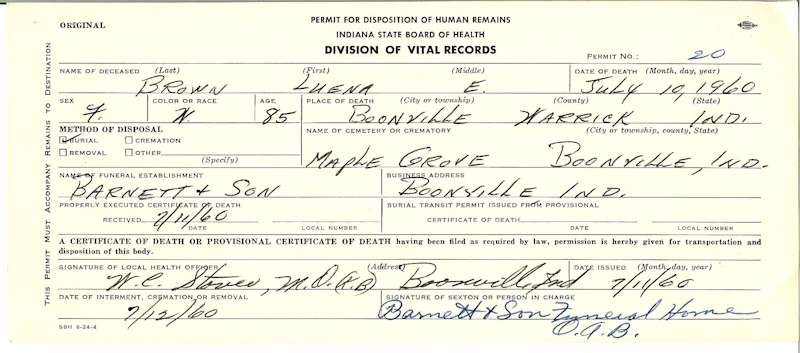 ORIGINAL
PERMIT FOR DISPOSITION OF HUMAN REMAINS
INDIANA STATE BOARD OF HEALTH
DIVISION OF VITAL RECORDS
PERMIT NO.: 20
THIS PERMIT MUST ACCOMPANY REMAINS TO DESTINATION
NAME OF DECEASED (Last) (First) (Middle) DATE OF DEATH (Month, day, year)
BROWN LUENA E. JULY 10, 1960
SEX COLOR OR RACE AGE PLACE OF DEATH (City or township) (County) (State)
F. W. 85 BOONVILLE WARRICK IND.
METHOD OF DISPOSAL NAME OF CEMETERY OR CREMATORY (City or township, county, State)
BURIAL CREMATION
REMOVAL OTHER (Specify)
MAPLE GROVE BOONVILLE, IND.
NAME OF FUNERAL ESTABLISHMENT BUSINESS ADDRESS
BARNETT & SON BOONVILLE IND.
PROPERLY EXECUTED CERTIFICATE OF DEATH BURIAL TRANSIT PERMIT ISSUED FROM PROVISIONAL
RECEIVED 7/11/60 CERTIFICATE OF DEATH
DATE LOCAL NUMBER DATE LOCAL NUMBER
A CERTIFICATE OF DEATH OR PROVISIONAL CERTIFICATE OF DEATH having been filed as required by law, permission is hereby given for transportation and
disposition of this body.
SIGNATURE OF LOCAL HEALTH OFFICER (Address) DATE ISSUED (Month, day, year)
W. C. Stover, M.D. Boonville Ind 7/11/60
DATE OF INTERMENT, CREMATION OR REMOVAL SIGNATURE OF SEXTON OR PERSON IN CHARGE
7/12/60 Barnett & Son Funeral Home
O.A.B.
SBH 6-24-4